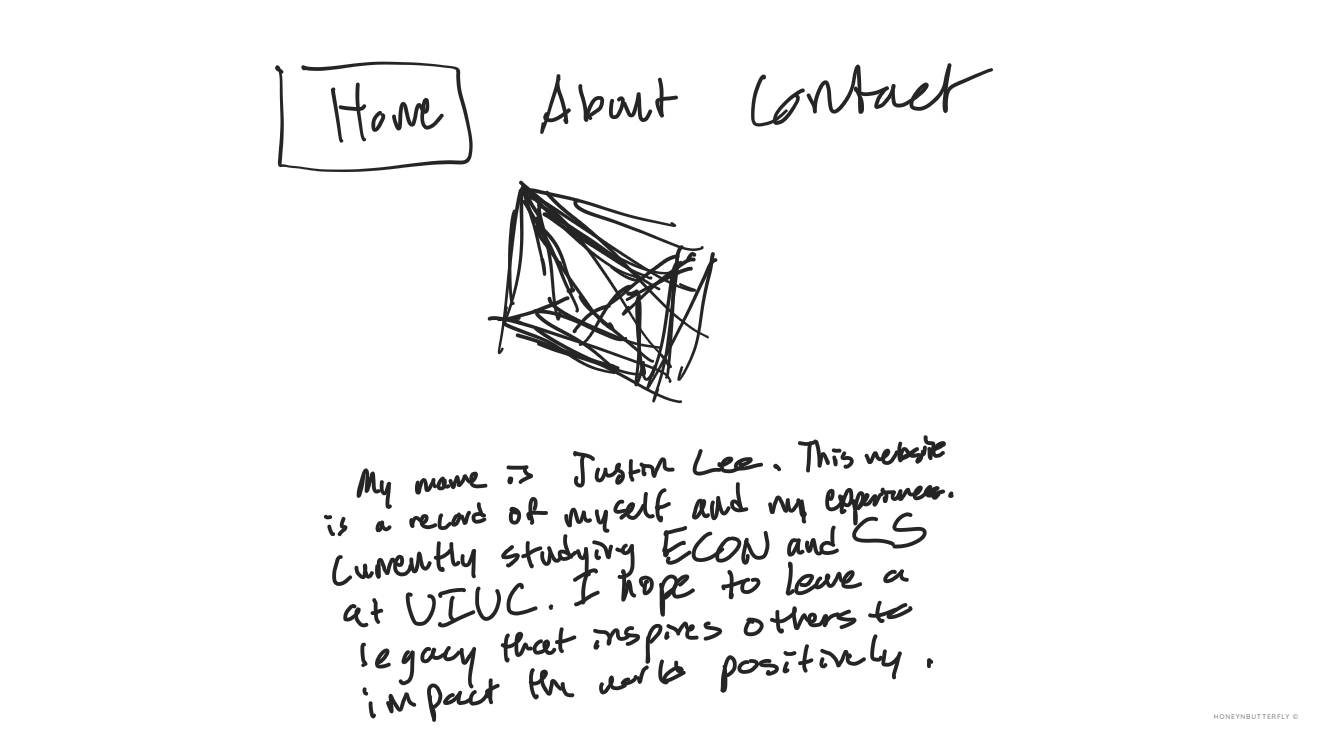 Home About Contact
My name is Justin Lee. This website
is a record of myself and my experiences.
Currently studying ECON and CS
at UIUC. I hope to leave a
legacy that inspires others to
impact the world positively.
HONEYNBUTTERFLY ©